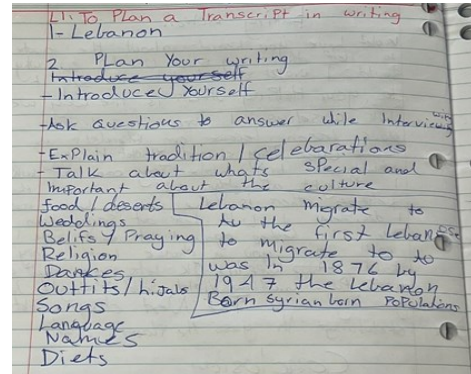 LI: To Plan a Transcript in writing
1- Lebanon
2. Plan Your writing
Introduce yourself
- Introduce Yourself
- Ask Questions to answer while Interviewing
- Explain tradition / Celebarations
- Talk about whats special and
Important about the culture
food / deserts
Weddings
Belifs / Praying
Religion
Dances
Outfits / hijabs
Songs
Language
Names
Diets
Lebanon migrate to
the first Lebanese
to migrate to
was In 1876 by
1947 the Lebanon
Born syrian born Populations